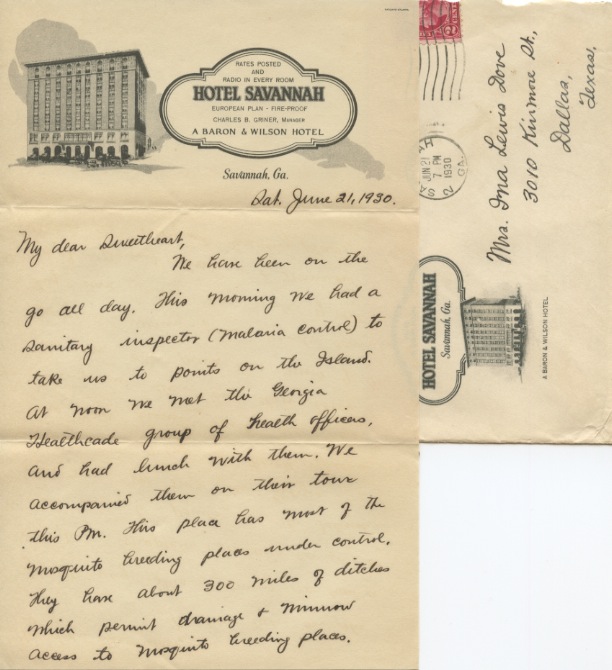 RATES POSTED
AND
RADIO IN EVERY ROOM
HOTEL SAVANNAH
EUROPEAN PLAN - FIRE-PROOF
CHARLES B. GRINER, MANAGER
A BARON & WILSON HOTEL
Savannah, Ga.
Sat. June 21, 1930.
My dear Sweetheart,
We have been on the
go all day. This morning we had a
sanitary inspector (Malaria control) to
take us to points on the Island.
At noon we met the Georgia
Healthcade group of health officers,
and had lunch with them. We
accompanied them on their tour
this Pm. This place has most of the
mosquito breeding places under control.
They have about 300 miles of ditches
which permit drainage & minnow
access to mosquito breeding places.
JUN 21
7 PM
1930
GA.
Mrs. Ina Lewis Dove
3010 Kinmore St.,
Dallas,
Texas.
HOTEL SAVANNAH
Savannah, Ga.
A BARON & WILSON HOTEL